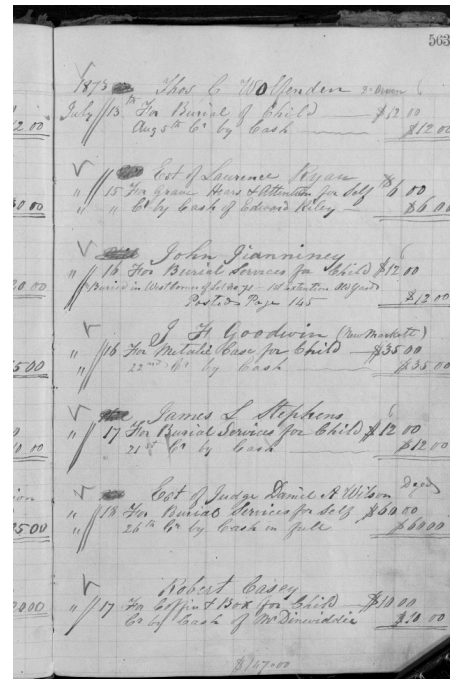 563
1873 Thos C Wolfenden
July 13th For Burial of Child $12.00
Aug 5th Cr by Cash $12.00
Est of Laurence Ryan
" 15 For Grave Hears & Attention for Self $6.00
" " Cr by Cash of Edward Riley $6.00
John Jianniney
" 16 For Burial Services for Child $12.00
Buried in West
Posted Page 145 $12.00
J. F. Goodwin (New Market)
" 16 For Metalic Case for Child $35.00
22nd Cr by Cash $35.00
James L Stephens
" 17 For Burial Services for Child $12.00
21st Cr by Cash $12.00
Est of Judge Daniel A Wilson Decd
" 18 For Burial Services for Self $60.00
26th Cr by Cash in full $60.00
Robert Casey
" 17 For Coffin & Box for Child $10.00
Cr by Cash of Mr Dinwiddie $10.00
$147.00
2.00
20.00
5.00
25.00